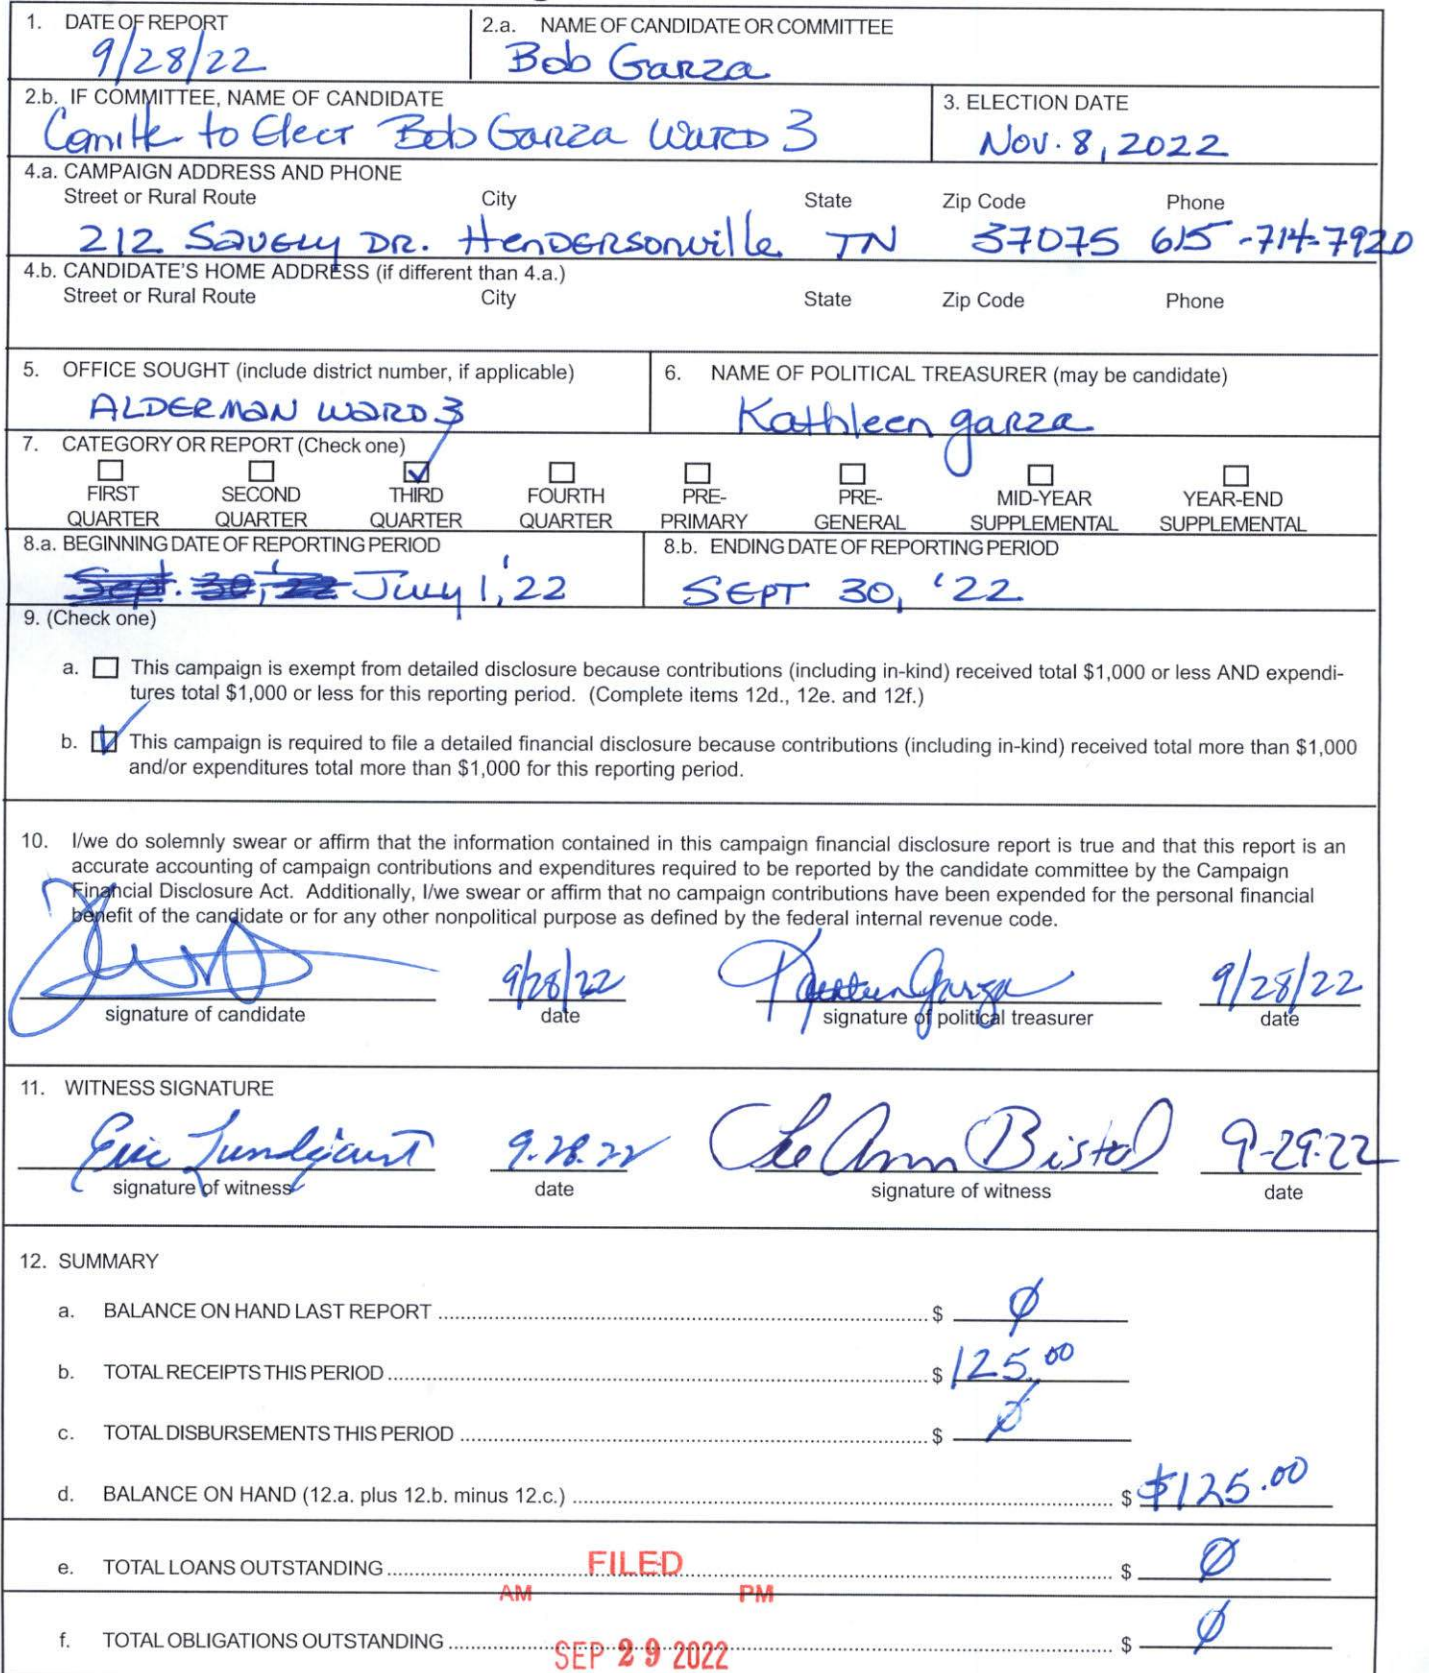 1. DATE OF REPORT
9/28/22
2.a. NAME OF CANDIDATE OR COMMITTEE
Bob Garza
2.b. IF COMMITTEE, NAME OF CANDIDATE
to Elect Bob Garza Ward 3
3. ELECTION DATE
Nov. 8, 2022
4.a. CAMPAIGN ADDRESS AND PHONE
Street or Rural Route City State Zip Code Phone
212 Savely DR. Hendersonville TN 37075 615-714-7920
4.b. CANDIDATE'S HOME ADDRESS (if different than 4.a.)
Street or Rural Route City State Zip Code Phone
5. OFFICE SOUGHT (include district number, if applicable)
ALDERMAN WARD 3
6. NAME OF POLITICAL TREASURER (may be candidate)
Kathleen garza
7. CATEGORY OR REPORT (Check one)
FIRST QUARTER
SECOND QUARTER
THIRD QUARTER
FOURTH QUARTER
PRE-PRIMARY
PRE-GENERAL
MID-YEAR SUPPLEMENTAL
YEAR-END SUPPLEMENTAL
8.a. BEGINNING DATE OF REPORTING PERIOD
Sept. 30, '22 July 1, '22
8.b. ENDING DATE OF REPORTING PERIOD
SEPT 30, '22
9. (Check one)
a. This campaign is exempt from detailed disclosure because contributions (including in-kind) received total $1,000 or less AND expendi-
tures total $1,000 or less for this reporting period. (Complete items 12d., 12e. and 12f.)
b. This campaign is required to file a detailed financial disclosure because contributions (including in-kind) received total more than $1,000
and/or expenditures total more than $1,000 for this reporting period.
10. I/we do solemnly swear or affirm that the information contained in this campaign financial disclosure report is true and that this report is an
accurate accounting of campaign contributions and expenditures required to be reported by the candidate committee by the Campaign
Financial Disclosure Act. Additionally, I/we swear or affirm that no campaign contributions have been expended for the personal financial
benefit of the candidate or for any other nonpolitical purpose as defined by the federal internal revenue code.
9/28/22 Kathleen Garza 9/28/22
signature of candidate date signature of political treasurer date
11. WITNESS SIGNATURE
Eric 9.28.22 Lee Ann Bistol 9-29-22
signature of witness date signature of witness date
12. SUMMARY
a. BALANCE ON HAND LAST REPORT $ Ø
b. TOTAL RECEIPTS THIS PERIOD $ 125.00
c. TOTAL DISBURSEMENTS THIS PERIOD $ Ø
d. BALANCE ON HAND (12.a. plus 12.b. minus 12.c.) $ $125.00
e. TOTAL LOANS OUTSTANDING $ Ø
FILED
AM PM
f. TOTAL OBLIGATIONS OUTSTANDING $ Ø
SEP 29 2022